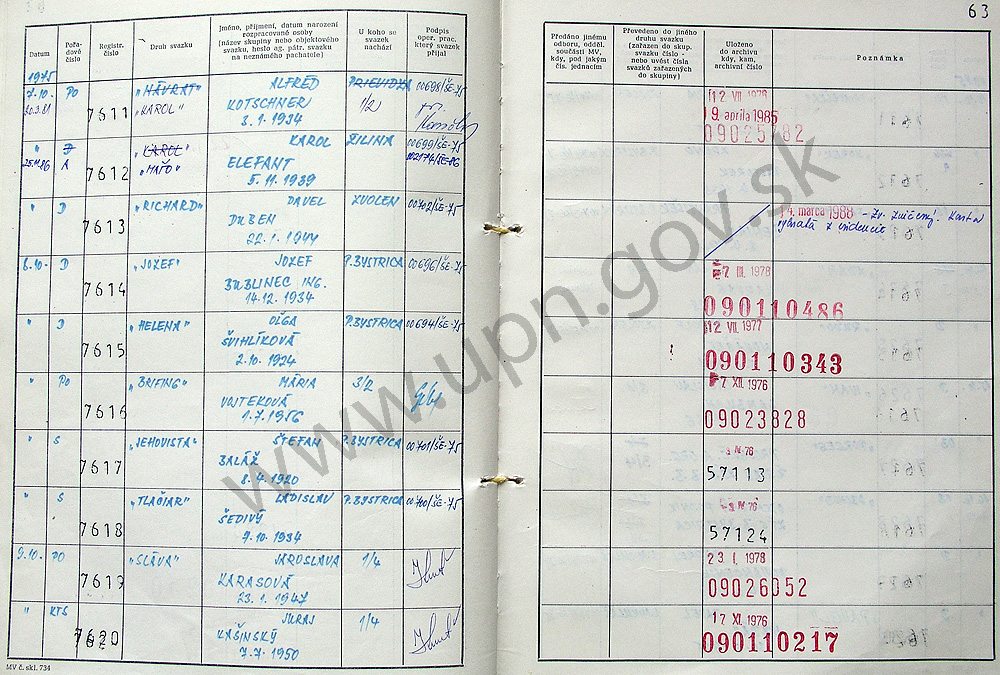 63
Datum
Pořa-
dové
číslo
Registr.
číslo
Druh svazku
Jméno, příjmení, datum narození
rozpracované osoby
(název skupiny nebo objektového
svazku, heslo ag. pátr. svazku
na neznámého pachatele)
U koho se
svazek
nachází
Podpis
oper. prac.
který svazek
přijal
Předáno jinému
odboru, odděl.
součásti MV,
kdy, pod jakým
čís. jednacím
Převedeno do jiného
druhu svazku
(zařazen do skup.
svazku číslo -
nebo uvést čísla
svazků zařazených
do skupiny)
Uloženo
do archivu
kdy, kam,
archivní číslo
Poznámka
1975
7.10. PO 7611 „NÁVRAT" ALFRÉD PRIEVIDZA 00698/ŠE-75
„KAROL" KOTSCHNER 1/2
3.1.1934
12 VII 1976
9. apríla 1985
" 7612 „KAROL" KAROL ŽILINA 00699/ŠE-75
25.11.86 A „MAŤO" ELEFANT
5.11.1939
" D 7613 „RICHARD" PAVEL ZVOLEN 00702/ŠE-75
DUBEN
22.1.1944
14. marca 1988 - Zv. zničený. Karta
vyňatá z evidencie
8.10. D 7614 „JOZEF" JOZEF P.BYSTRICA 00696/ŠE-75
BUBLINEC ING.
14.12.1934
7 III. 1978
090110486
" D 7615 „HELENA" OĽGA P.BYSTRICA 00694/ŠE-75
ŠVIHLÍKOVÁ
2.10.1924
12 VII. 1977
090110343
" PO 7616 „BRIFING" MÁRIA 3/2
VOJTEKOVÁ
1.7.1956
7 XII. 1976
09023828
" S 7617 „JEHOVISTA" ŠTEFAN P.BYSTRICA 00701/ŠE-75
BALÁŽ
8.4.1920
IV 76
57113
" S 7618 „TLAČIAR" LADISLAV P.BYSTRICA 00700/ŠE-75
ŠEDIVÝ
9.10.1934
IV 76
57124
9.10. PO 7619 „SLÁVA" JAROSLAVA 1/4
KARASOVÁ
23.1.1947
23. I. 1978
09026052
" KTS 7620 JURAJ 1/4
KAŠINSKÝ
7.7.1950
17 XI. 1976
090110217
MV č. skl. 734
www.upn.gov.sk